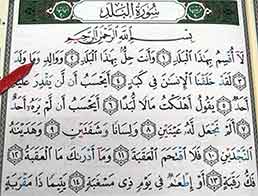 سُورَةُ الْبَلَدِ
بِسْمِ اللَّهِ الرَّحْمَٰنِ الرَّحِيمِ
لَا أُقْسِمُ بِهَٰذَا الْبَلَدِ ١ وَأَنْتَ حِلٌّ بِهَٰذَا الْبَلَدِ ٢ وَوَالِدٍ وَمَا وَلَدَ
٣ لَقَدْ خَلَقْنَا الْإِنْسَٰنَ فِي كَبَدٍ ٤ أَيَحْسَبُ أَنْ لَنْ يَقْدِرَ عَلَيْهِ
أَحَدٌ ٥ يَقُولُ أَهْلَكْتُ مَالًا لُبَدًا ٦ أَيَحْسَبُ أَنْ لَمْ يَرَهُ أَحَدٌ
٧ أَلَمْ نَجْعَلْ لَهُ عَيْنَيْنِ ٨ وَلِسَانًا وَشَفَتَيْنِ ٩ وَهَدَيْنَٰهُ
النَّجْدَيْنِ ١٠ فَلَا اقْتَحَمَ الْعَقَبَةَ ١١ وَمَا أَدْرَىٰكَ مَا الْعَقَبَةُ ١٢
فَكُّ رَقَبَةٍ ١٣ أَوْ إِطْعَٰمٌ فِي يَوْمٍ ذِي مَسْغَبَةٍ ١٤ يَتِيمًا ذَا مَقْرَبَةٍ